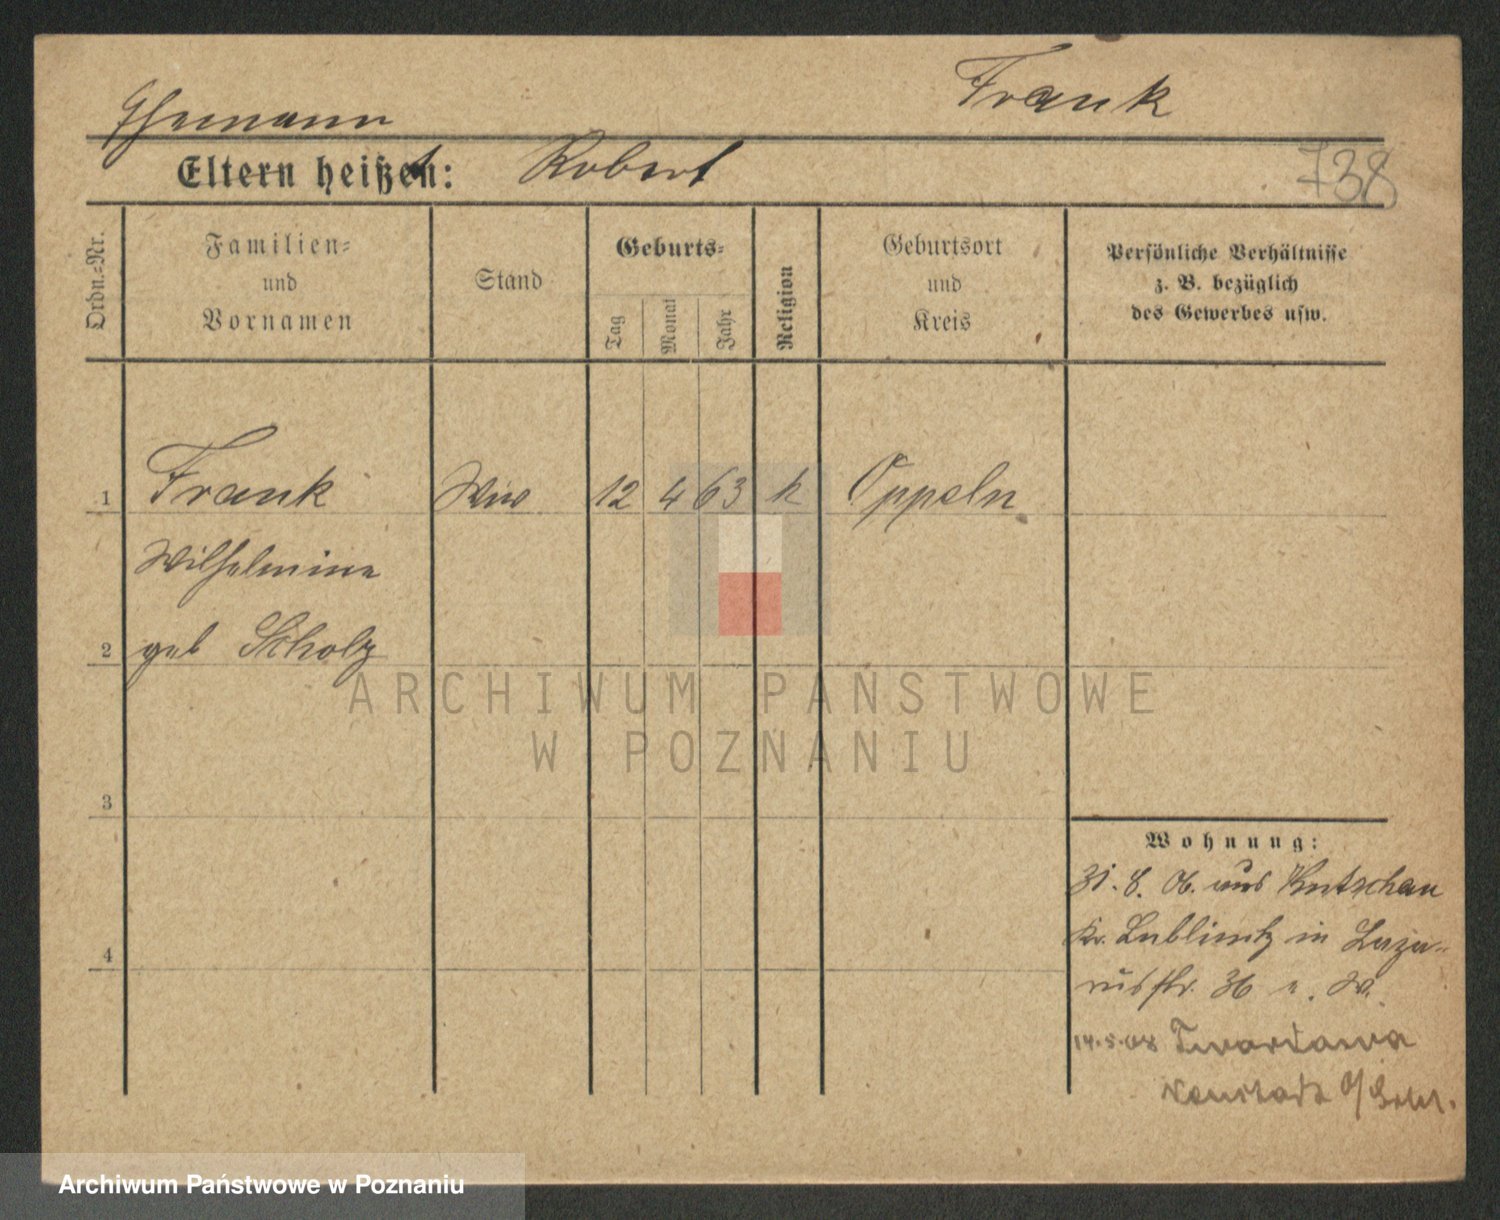 Frank
Ehemann
Eltern heißen: t Robert
738
Ordn.=Nr.
Familien=
und
Vornamen
Stand
Geburts=
Tag
Monat
Jahr
Religion
Geburtsort
und
Kreis
Persönliche Verhältnisse
z. B. bezüglich
des Gewerbes usw.
1 Frank Ww 12 4 63 k Oppeln
Wilhelmine
2 geb Scholz
ARCHIWUM PAŃSTWOWE
W POZNANIU
3
Wohnung:
31. 8. 06. aus
Kr. Lublinitz in Laza-
russtr. 36 W.
4
14.5.08 Twardawa
Neustadt O/Schl.
Archiwum Państwowe w Poznaniu